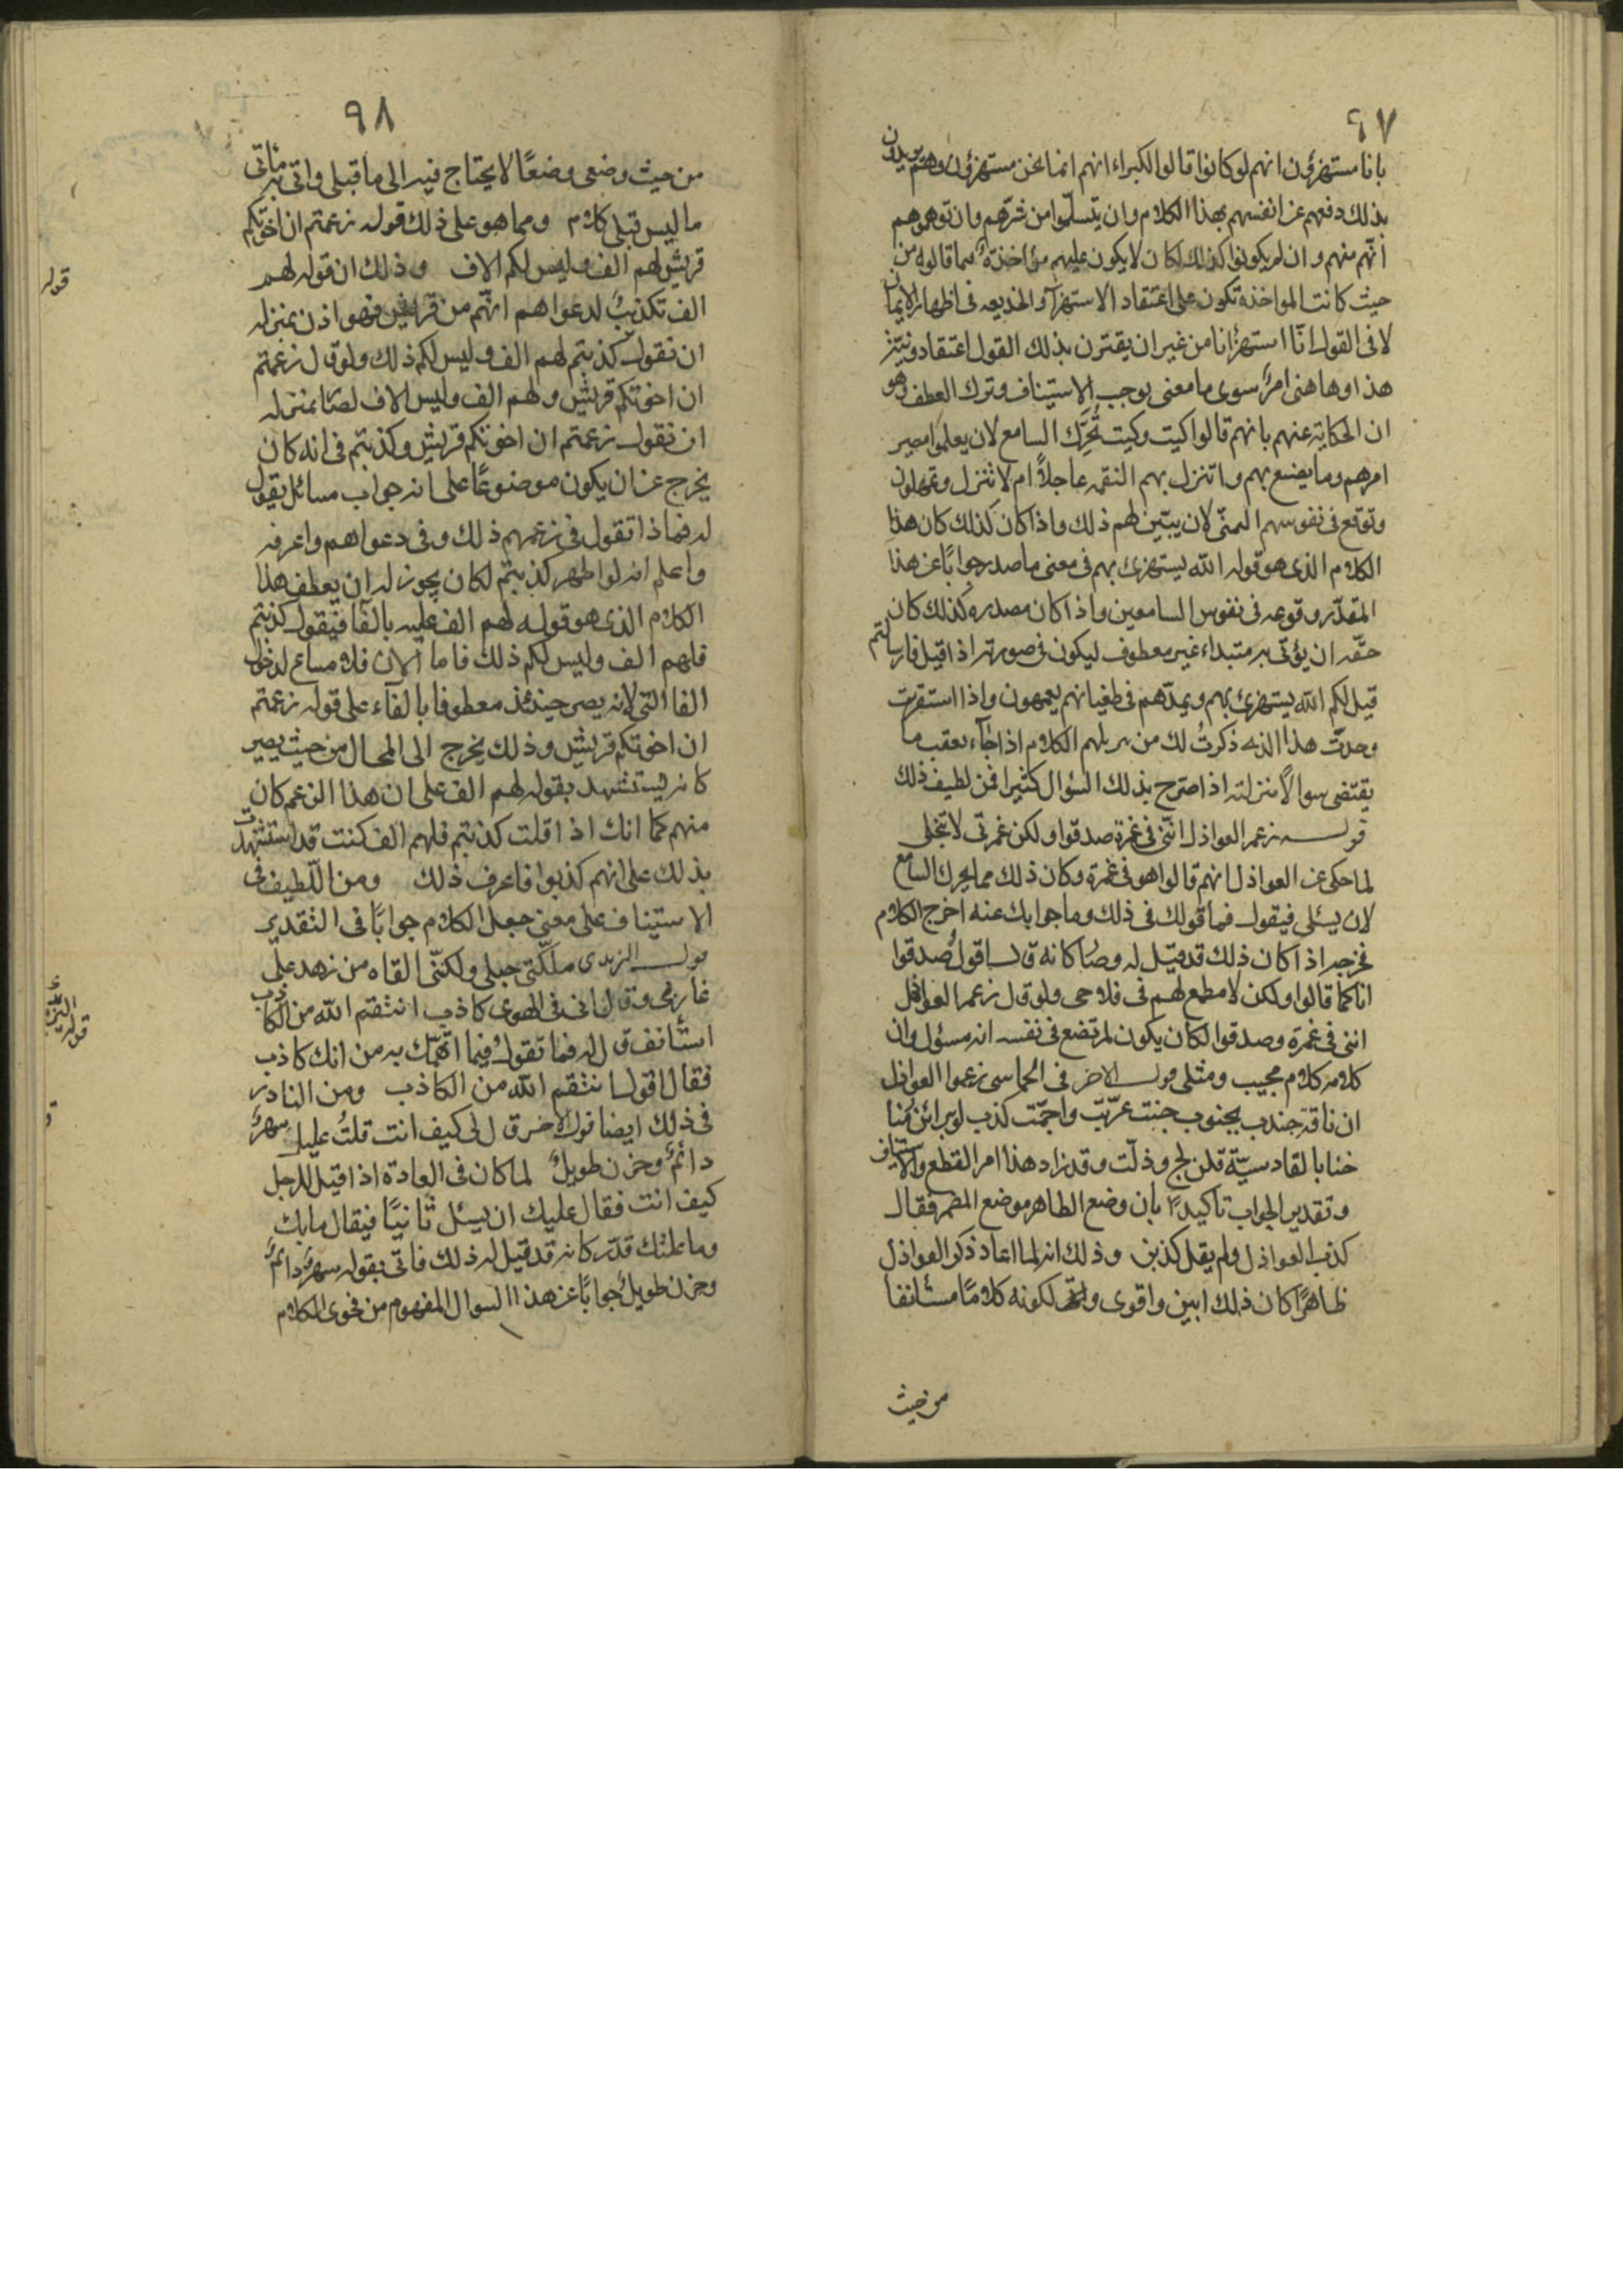 ٩٧
بانا مستهزؤن انهم لو كانوا قالوا لكبراءانهم انما نحن مستهزؤن وهم يريدون
بذلك دفعهم عن انفسهم بهذا الكلام وان يتسلموا من شرّهم وان توهموهم
انّهم منهم وان لم يكونوا كذلك لكان لا يكون عليهم مؤاخذة فيما قالوه من
حيث كانت المواخذة تكون على اعتقاد الاستهزآ والخديعه فى اظهار الايمان
لا فى القول انّا استهزأنا من غير ان يقترن بذلك القول اعتقاد ونيّة
هذا وها هنى امرٌ سوى ما معنى يوجب الاستيناف وترك العطف وهو
ان الحكاية عنهم بانهم قالوا كيت وكيت تُحرّك السامع لان يعلموا مصير
امرهم وما يضع بهم واتنزل بهم النقمة عاجلاً ام لا تنزل وتمهلون
وتوقع فى نفوسهم التمنّى لان يبيّن لهم ذلك واذا كان كذلك كان هذا
الكلام الذى هو قوله الله يستهزئ بهم فى معنى ما صدر جوابًا عن هذا
المقدّر وقوعه فى نفوس السامعين واذا كان مصدره كذلك كان
حقّه ان يؤتى به مبتداء غير معطوف ليكون فى صورته اذا قيل فان سالتم
قيل لكم الله يستهزئ بهم ويمدّهم فى طغيانهم يعمهون واذا استقريت
وجدت هذا الذى ذكرتُ لك من الكلام اذا جاء بعقب ما
يقتضى سوالاً منزلته اذا صرح بذلك السؤال كثيرا فمن لطيف ذلك
قوله زعم العواذل انّنى فى غمرة صدقوا ولكن غمرتى لا تنجلى
لما حكى عن العواذل انهم قالوا هو فى غمرة وكان ذلك مما يحرك السامع
لان يسئلى فيقول فما قولك فى ذلك وما جوابك عنه اخرج الكلام
مخرجه اذا كان ذلك قد قيل له وصار كانه قال اقول صدقوا
انا كما قالوا ولكن لا مطمع لهم فى فلاحى ولو قال زعم العواذل
اننى فى غمرة وصدقوا لكان يكون لم تضع فى نفسه انه مسئول وان
كلامه كلام مجيب ومثلى قول الاخر فى الحماسى زعموا العواذل
ان ناقة جندب بجنوب جنت عرّيت واجمّت كذب لو براين مُنا
خنا بالقادسيّة قلن لج وذلّت وقد زاد هذا امر القطع والاستيناف
وتقدير الجواب تأكيدًا بان وضع الظاهر موضع المضمر فقال
كذب العواذل ولم يقل كذبن وذلك انه لما اعاد ذكر العواذل
ظاهرًا كان ذلك ابين واقوى ولكونه كلامًا مستأنفا
من حيث
٩٨
من حيث وضعى وضعًا لا يحتاج فيه الى ما قبلى واتى به ماتى
ما ليس قبلى كلام ومما هو على ذلك قوله زعمتم ان اخوتكم
قريش لهم الف وليس لكم الاف وذلك ان قوله لهم
الف تكذيبٌ لدعواهم انّهم من قريش فهو اذن بمنزله
ان نقول كذبتم لهم الف وليس لكم ذلك ولو قال زعمتم
ان اخوتكم قريش ولهم الف وليس الاف لصار بمنزله
ان نقول زعمتم ان اخوتكم قريش وكذبتم فى انه كان
يخرج عن ان يكون موضوعًا على انه جواب مسائل يقول
له فما ذا تقول فى زعمهم ذلك وفى دعواهم واعرفه
واعلم انه لو اظهر كذبتم لكان يجوز له ان يعطف هذا
الكلام الذى هو قوله لهم الف عليه بالفآ فيقول كذبتم
فلهم الف وليس لكم ذلك فاما الان فلا مساغ لدخول
الفا التى لانه يصير حينئذ معطوفا بالفاء على قوله زعمتم
ان اخوتكم قريش وذلك يخرج الى المحال من حيث يصير
كانه ليستشهد بقوله لهم الف على ان هذا الزعم كان
منهم كما انك اذا قلت كذبتم فلهم الف كنت قد استشهدت
بذلك على انهم كذبوا فاعرف ذلك ومن اللّطيف فى
الاستيناف على معنى جعل الكلام جوابًا فى التقدير
قول اليزيدى ملكّتى حبلى ولكنّى القاه من زهد على
غاربى وقال انى فى الهوى كاذب انتقم الله من الكاذب
استأنف قال له فما تقولُ فيما اتّهمك به من انك كاذب
فقال اقول انتقم الله من الكاذب ومن النادر
فى ذلك ايضا قول الاخر قال لى كيف انت قلتُ عليل سهرٌ
دائمٌ وحزن طويلٌ لما كان فى العادة اذا قيل للرجل
كيف انت فقال عليك ان يسئل ثانيًا فيقال ما بك
وما علتك قدّر كانه قد قيل له ذلك فاتى بقوله سهرٌ دائمٌ
وحزن طويلٌ جوابًا عن هذا السوال المفهوم من فحوى الكلام
قوله
قوله اليزيدى